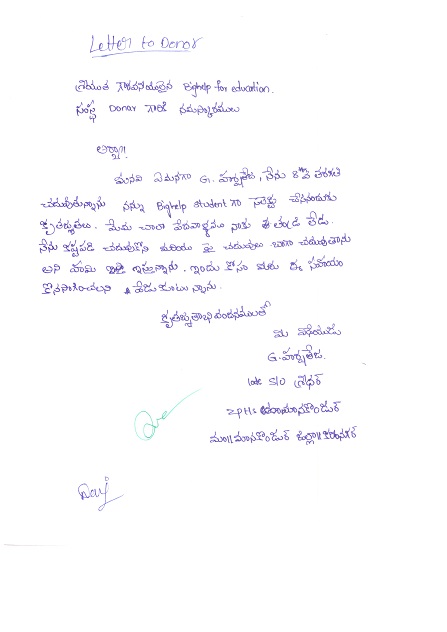 Letter to Donor
శ్రీయుత గౌరవనీయులైన Bighelp for education.
సంస్థ Donar గారికి నమస్కారములు
ఆర్యా!
మనవి ఏమనగా G. హర్షతేజ, నేను 8వ తరగతి
చదువుతున్నాను నన్ను Bighelp student గా సెలెక్ట్ చేసినందుకు
కృతజ్ఞతలు. మేము చాలా పేదవాళ్ళము నాకు తండ్రి లేడు.
నేను కష్టపడి చదువుకొని మరియు పై చదువులు బాగా చదువుతాను
అని హామి ఇస్తున్నాను. ఇందు కోసం మీరు ఈ సహాయం
కొనసాగించాలని వేడుకుంటున్నాను.
కృతజ్ఞతాభివందనములతో
మీ విధేయుడు
G. హర్షతేజ
late S/O శ్రీధర్
ZPHS మానకొండుర్
మం॥ మానకొండుర్ జిల్లా॥ కరీంనగర్